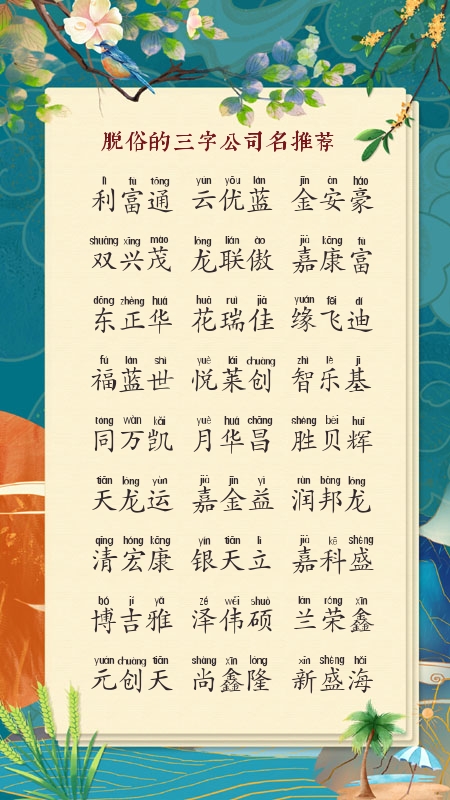 脱俗的三字公司名推荐
lì fù tōng yún yōu lán jīn ān háo
利富通 云优蓝 金安豪
shuāng xīng mào lóng lián ào jiā kāng fù
双兴茂 龙联傲 嘉康富
dōng zhèng huá huā ruì jiā yuán fēi dí
东正华 花瑞佳 缘飞迪
fú lán shì yuè lái chuàng zhì lè jī
福蓝世 悦莱创 智乐基
tóng wàn kǎi yuè huá chāng shèng bèi huī
同万凯 月华昌 胜贝辉
tiān lóng yùn jiā jīn yì rùn bāng lóng
天龙运 嘉金益 润邦龙
qīng hóng kāng yín tiān lì jiā kē shèng
清宏康 银天立 嘉科盛
bó jí yǎ zé wěi shuò lán róng xīn
博吉雅 泽伟硕 兰荣鑫
yuán chuàng tiān shàng xīn lóng xīn shèng hǎi
元创天 尚鑫隆 新盛海